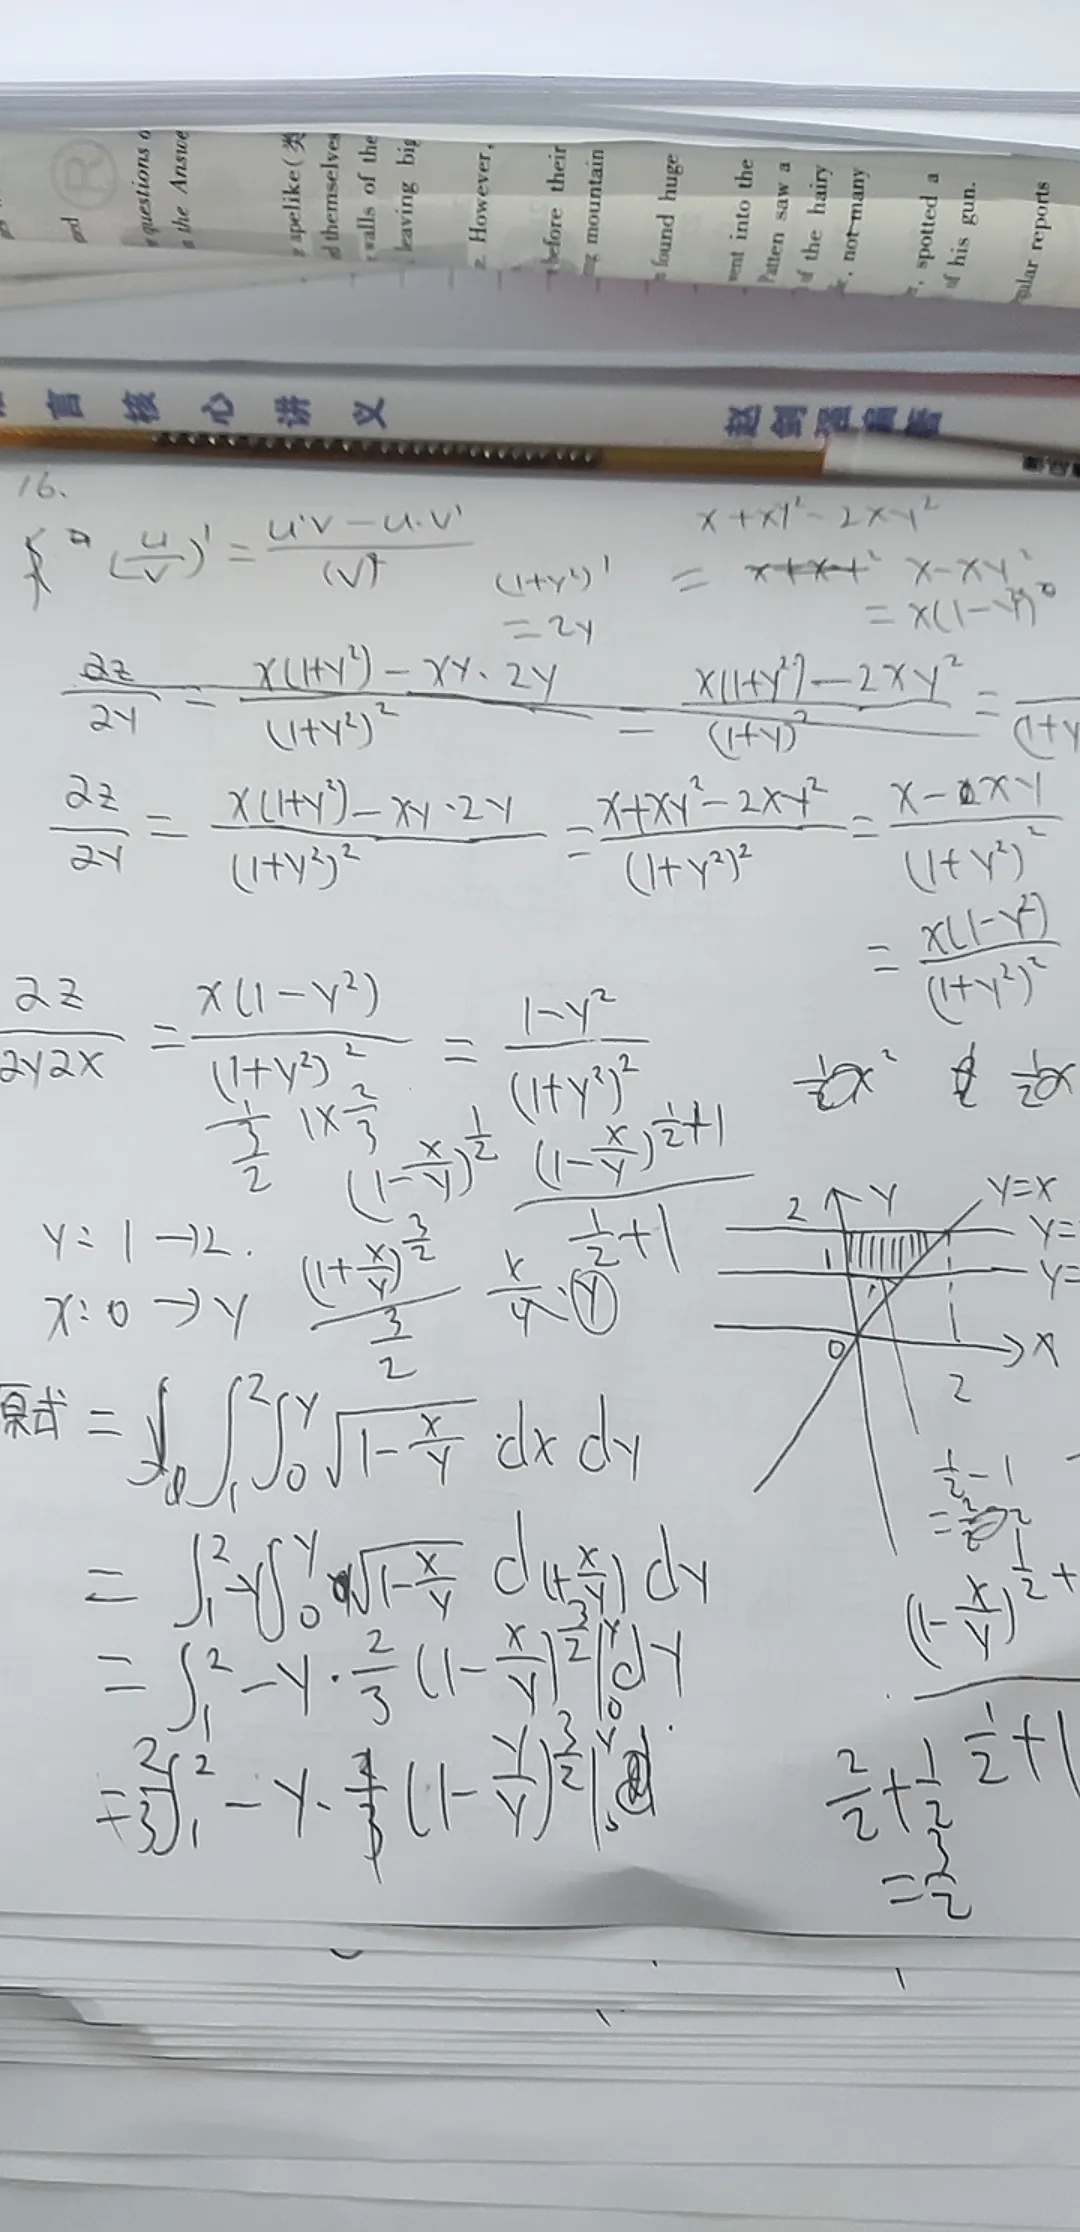 R
questions
the Answe
apelike (类
themselves
walls of the
leaving big
However,
before their
mountain
found huge
into the
Patten saw a
of the hairy
not many
spotted a
of his gun.
reports
言核心讲义
赵剑
16.
(u/v)' = (u'v - u·v')/(v)²
(1+y²)'
= 2y
x+xy²-2xy²
= x-xy²
= x(1-y²)
∂z/∂y = (x(1+y²) - xy·2y)/(1+y²)² = (x(1+y²)-2xy²)/(1+y)² =
∂z/∂y = (x(1+y²) - xy·2y)/(1+y²)² = (x+xy²-2xy²)/(1+y²)² = (x-xy)/(1+y²)²
= x(1-y²)/(1+y²)²
∂z/∂y∂x = x(1-y²)/(1+y²)² = (1-y²)/(1+y²)²
1/(3/2) 1×2/3
(1-x/y)^(1/2) (1-x/y)^(1/2+1)/(1/2+1)
y: 1→2.
x: 0→y
(1+x/y)^(3/2)/(3/2)
2 y y=x
1 y=
y=
0 x
2
原式 = ∫₁²∫₀^y √(1-x/y) dx dy
= ∫₁² -y∫₀^y √(1-x/y) d(1+x/y) dy
= ∫₁² -y·2/3 (1-x/y)^(3/2)|₀^y dy
= 2/3∫₁² -y·(1-y/y)^(3/2)|₀^y
1/2-1
(1-x/y)^(1/2+
1/2+1
2/2+1/2
=3/2